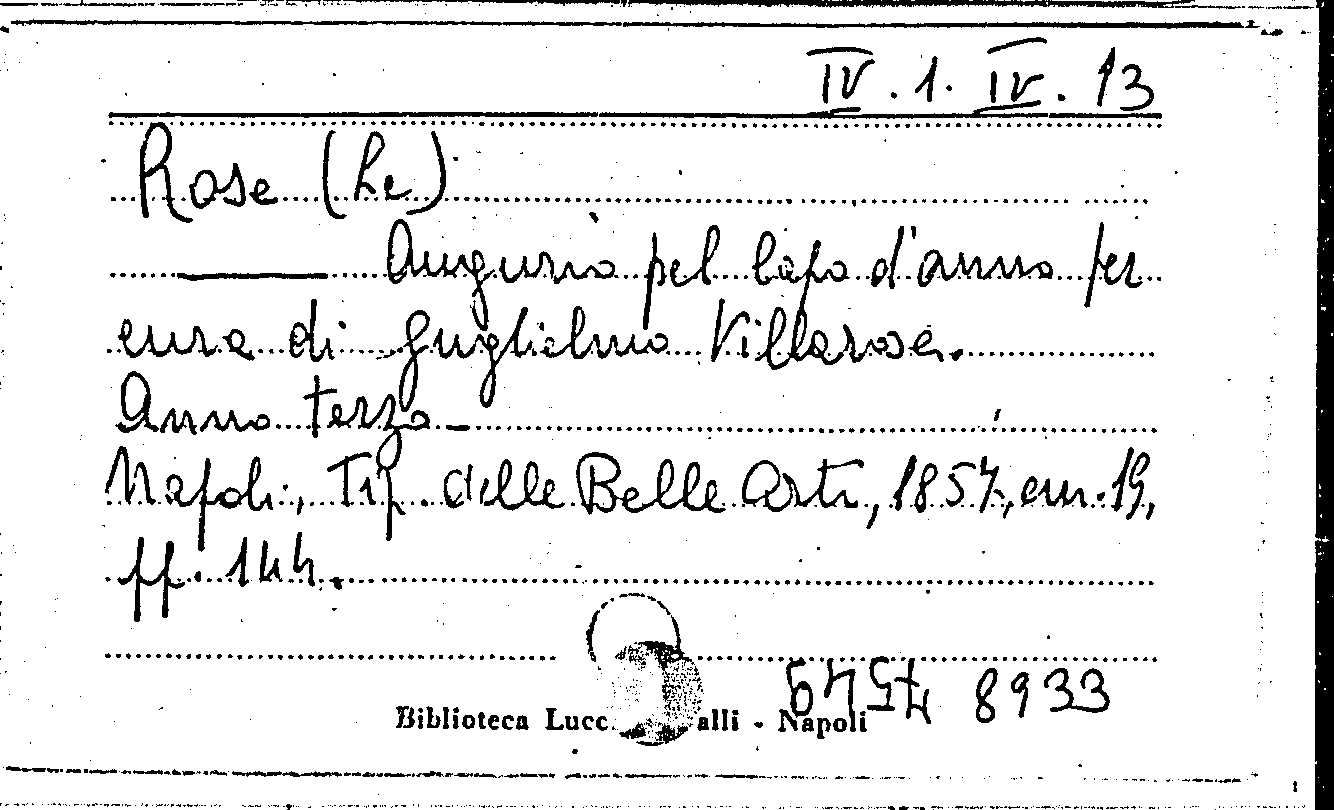 IV. 1. IV. 13
Rose (Le)
Augurio pel capo d'anno per
cura di Guglielmo Villarosa.
Anno terzo_
Napoli, Tip. delle Belle Arti, 1857, cm. 19,
pp. 144.
8933
Biblioteca Lucc alli - Napoli